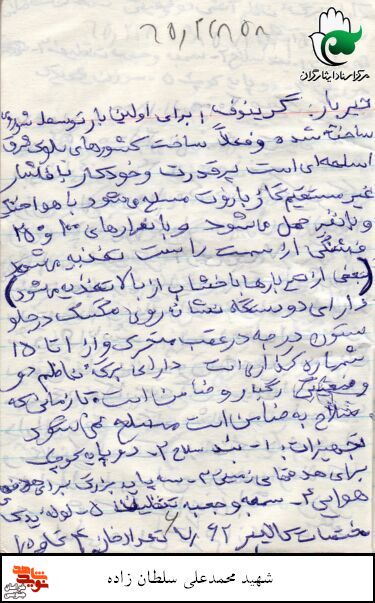 مرکز اسناد ایثارگران
تیربار: گرینوف برای اولین بار توسط شوروی
ساخته شده و فعلاً ساخت کشورهای بلوک شرق
اسلحه‌ای است پرقدرت و خودکار با فشار
غیر مستقیم گاز باروت مسلح میشود با هوا خنک
و با نفر حمل میشود و با نوارهای ۲۰۰ و ۲۵۰
فشنگی از سمت راست تغذیه میشود
(بعضی از تیربارها با خشاب از بالا تغذیه میشود)
دارای دو دستگاه نشانه روی مگسک در جلو
ستون درجه در عقب متحرک و از ۱ تا ۱۵
شماره گذاری است دارای برگه ناظم دو
وضعیتی رگبار و ضامن است که زمانی که
سلاح به ضامن است مسلح نمی‌شود
تجهیزات: ۱- بند سلاح ۲- دو پایه کوچک
برای هدفهای زمینی ۳- سه پایه بزرگ برای
هوایی ۴- سمبه و جعبه ۵- لوله یدکی
مشخصات کالیبر ۷/۶۲
شهید محمدعلی سلطان زاده
نوید شاهد